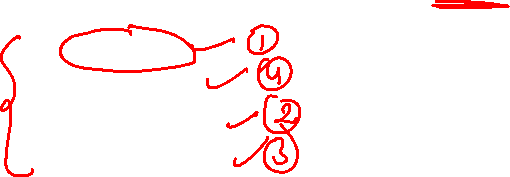 ①
④
②
③